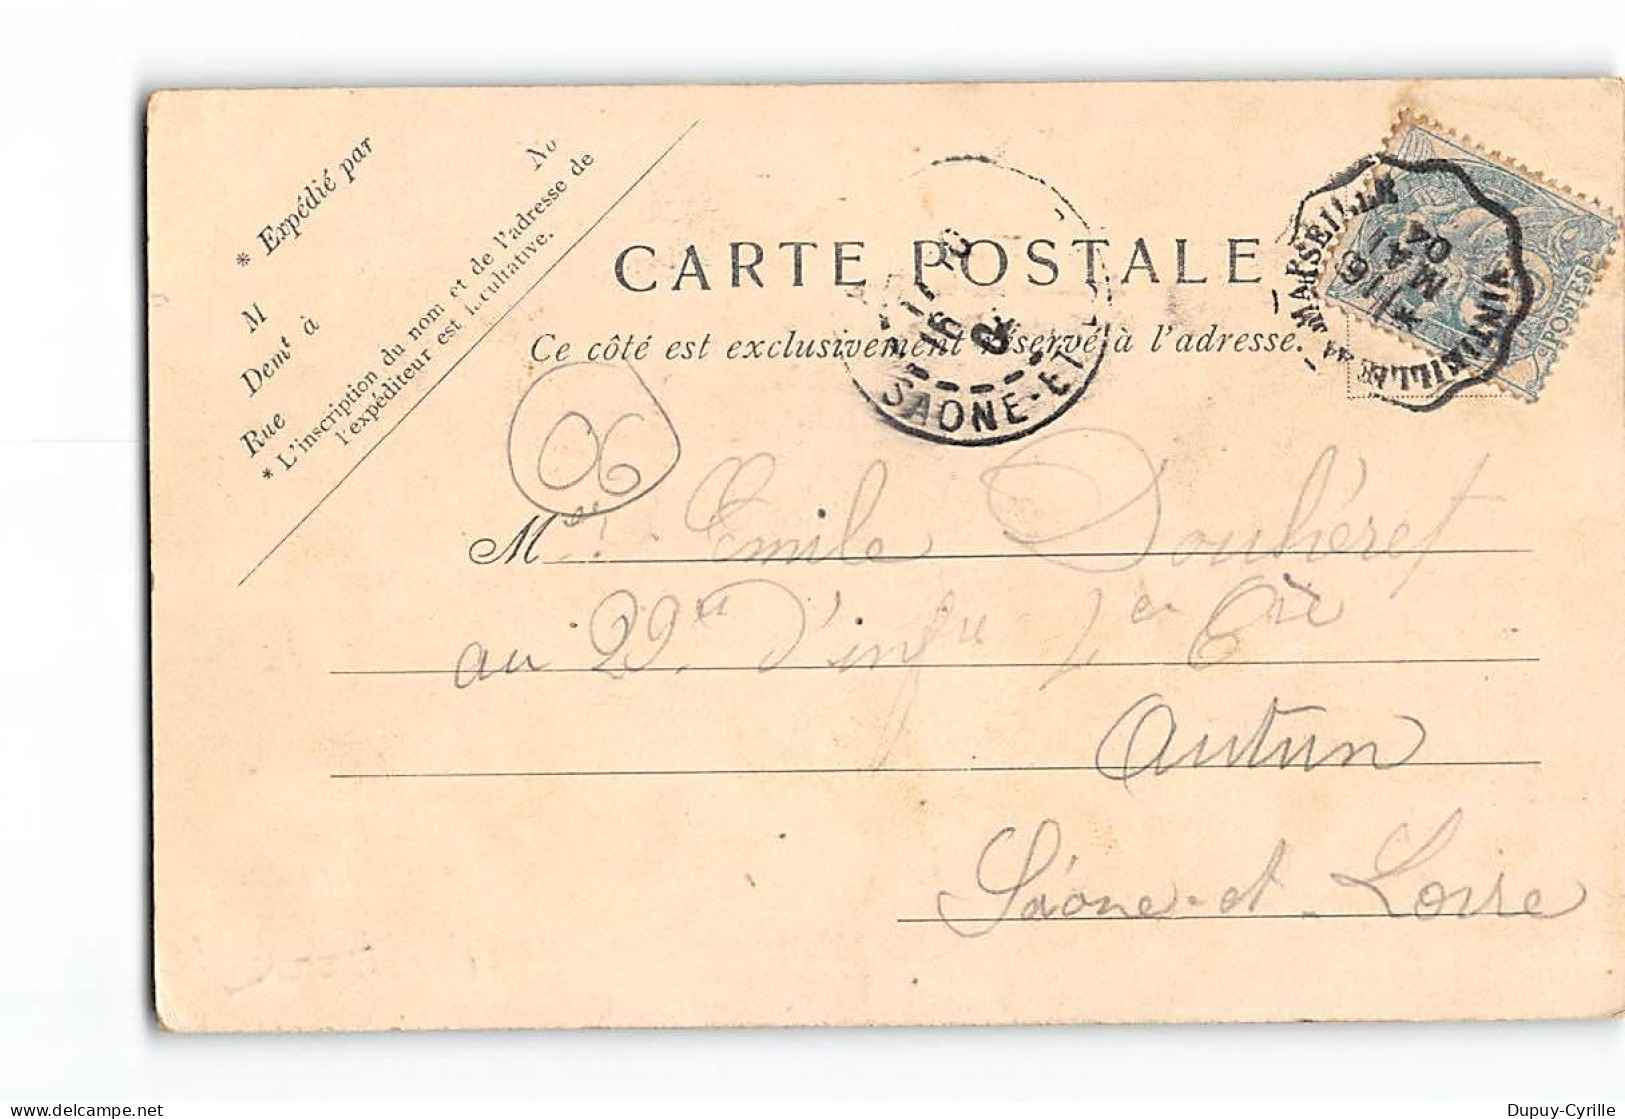 * Expédié par
No
M
Demt à
Rue
* L'inscription du nom et de l'adresse de
l'expéditeur est facultative.
CARTE POSTALE
Ce côté est exclusivement réservé à l'adresse.
SAONE-ET-L
16
MARSEILLE
VINTIMILLE
16
MAI
04
POSTES
06
Mr Emile Douhéret
au 29e d'infie 1er Cie
Autun
Saône-et-Loire
Dupuy-Cyrille